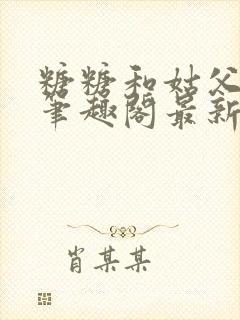 糖糖和姑父
笔趣阁最新
肖某某